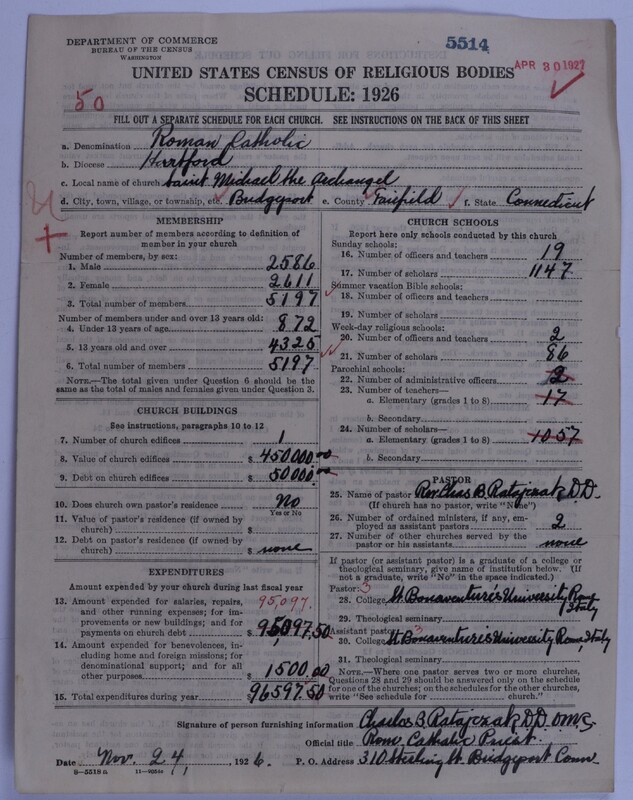 DEPARTMENT OF COMMERCE
BUREAU OF THE CENSUS
WASHINGTON
5514
APR 30 1927
UNITED STATES CENSUS OF RELIGIOUS BODIES
SCHEDULE: 1926
50
FILL OUT A SEPARATE SCHEDULE FOR EACH CHURCH. SEE INSTRUCTIONS ON THE BACK OF THIS SHEET
a. Denomination Roman Catholic
b. Diocese Hartford
c. Local name of church Saint Michael the Archangel
d. City, town, village, or township, etc. Bridgeport e. County Fairfield f. State Connecticut
MEMBERSHIP
Report number of members according to definition of
member in your church
Number of members, by sex:
1. Male 2586
2. Female 2611
3. Total number of members 5197
Number of members under and over 13 years old:
4. Under 13 years of age 872
5. 13 years old and over 4325
6. Total number of members 5197
NOTE.—The total given under Question 6 should be the
same as the total of males and females given under Question 3.
CHURCH BUILDINGS
See instructions, paragraphs 10 to 12
7. Number of church edifices 1
8. Value of church edifices $ 450000.00
9. Debt on church edifices $ 50000.00
10. Does church own pastor's residence? No
Yes or No
11. Value of pastor's residence (if owned by
church) $
12. Debt on pastor's residence (if owned by
church) $ none
EXPENDITURES
Amount expended by your church during last fiscal year
13. Amount expended for salaries, repairs, 95,097.
and other running expenses; for im-
provements or new buildings; and for
payments on church debt $ 95097.50
14. Amount expended for benevolences, in-
cluding home and foreign missions; for
denominational support; and for all
other purposes $ 1500.00
15. Total expenditures during year $ 96597.50
CHURCH SCHOOLS
Report here only schools conducted by this church
Sunday schools:
16. Number of officers and teachers 19
17. Number of scholars 1147
Summer vacation Bible schools:
18. Number of officers and teachers
19. Number of scholars
Week-day religious schools:
20. Number of officers and teachers 2
21. Number of scholars 86
Parochial schools:
22. Number of administrative officers 2
23. Number of teachers—
a. Elementary (grades 1 to 8) 17
b. Secondary
24. Number of scholars—
a. Elementary (grades 1 to 8) 1057
b. Secondary
PASTOR
25. Name of pastor Rev. Chas B. Ratajczak D.D.
(If church has no pastor, write "None")
26. Number of ordained ministers, if any, em-
ployed as assistant pastors 2
27. Number of other churches served by the
pastor or his assistants none
If pastor (or assistant pastor) is a graduate of a college or
theological seminary, give name of institution below. (If
not a graduate, write "No" in the space indicated.)
Pastor: 3
28. College St Bonaventure's University, Rome
Italy
29. Theological seminary
Assistant pastor: 3
30. College St. Bonaventure's University Rome, Italy
31. Theological seminary
NOTE.—Where one pastor serves two or more churches,
Questions 28 and 29 should be answered only on the schedule
for one of the churches; on the schedules for the other churches,
write "See schedule for church."
Signature of person furnishing information Charles B. Ratajczak D.D. OMC
Official title Rom. Catholic Priest
Date Nov. 24, 1926. P. O. Address 310 Sterling St. Bridgeport Conn.
8—5518 a